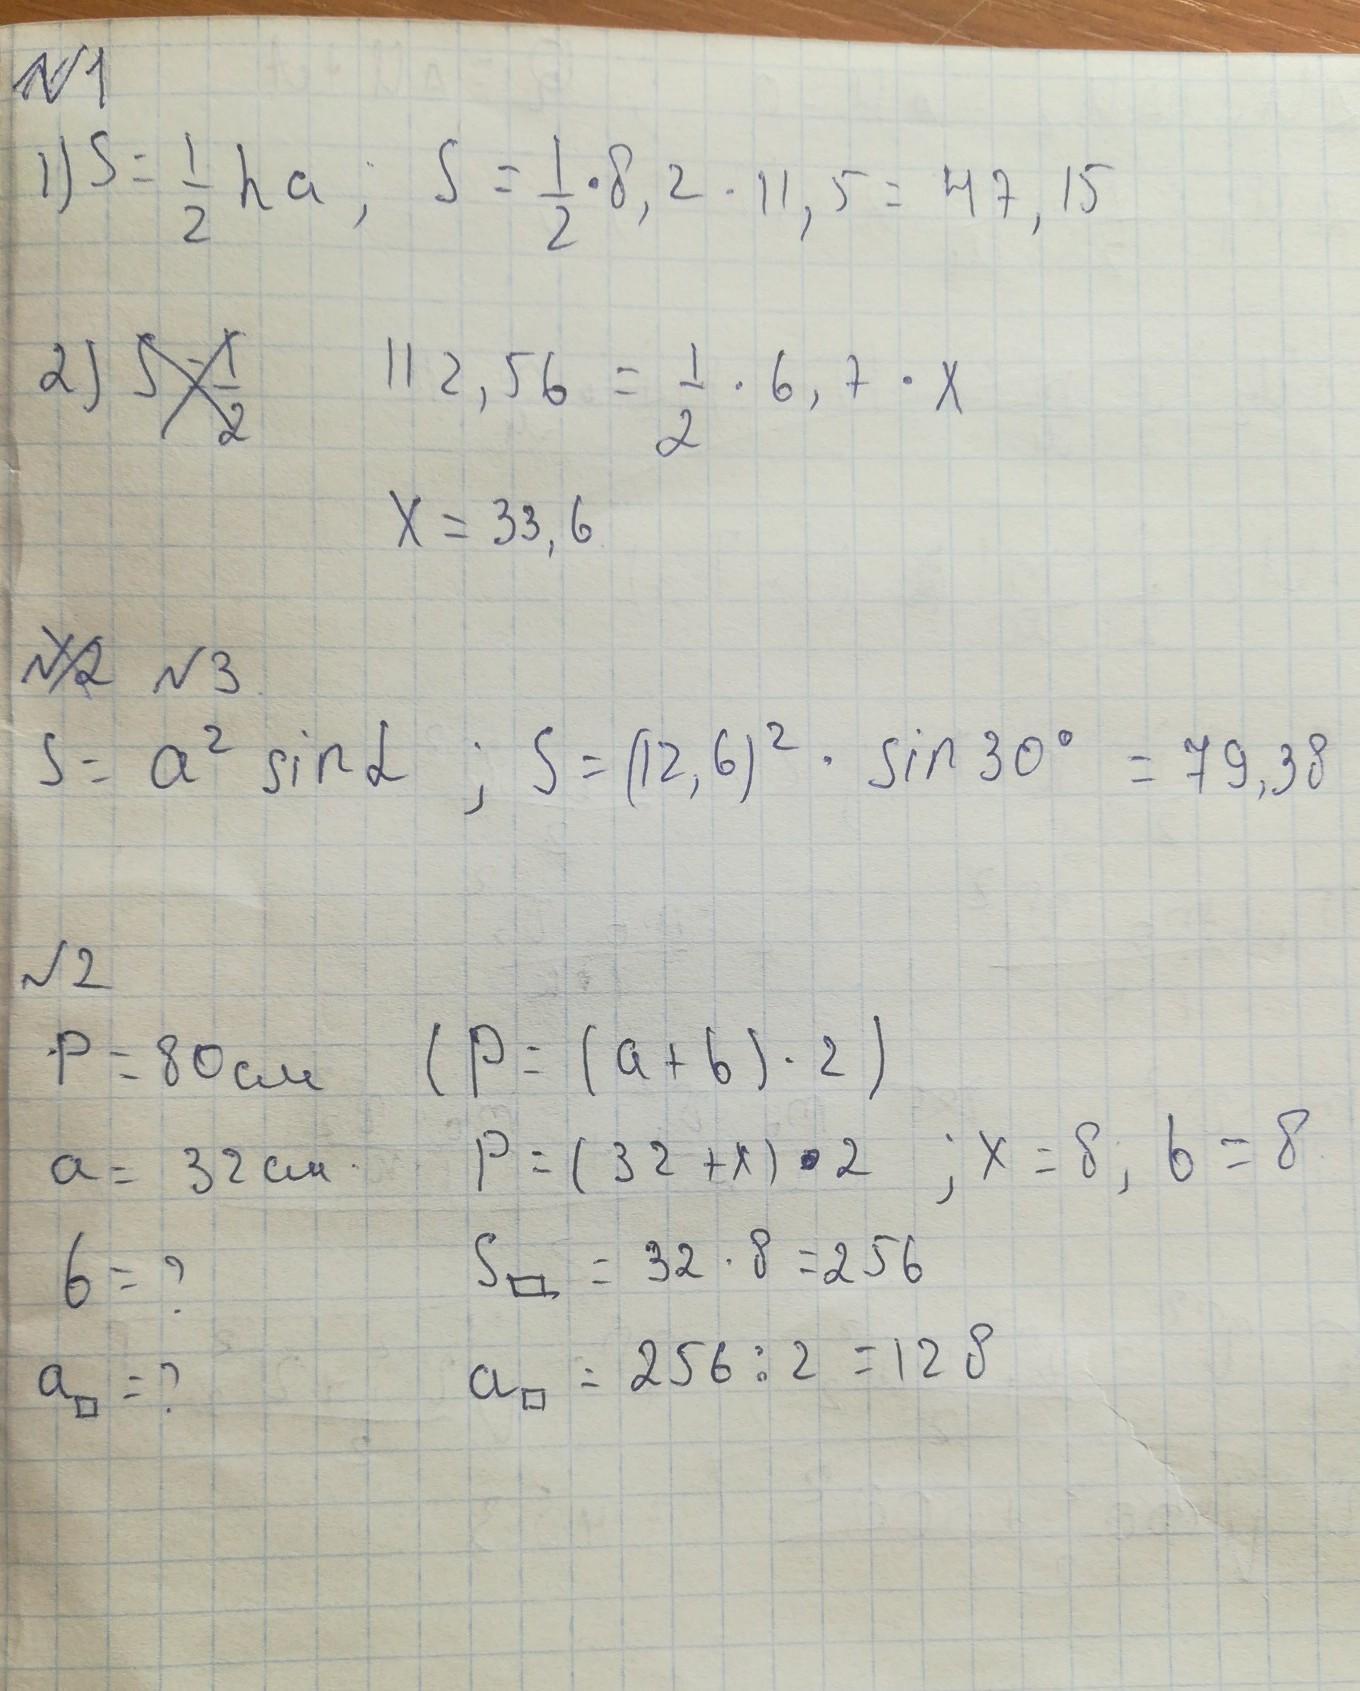 №1
1) S = 1/2 h a ; S = 1/2 · 8,2 · 11,5 = 47,15
2) S = 1/2 112,56 = 1/2 · 6,7 · x
x = 33,6
№2 №3
S = a² sin α ; S = (12,6)² · sin 30° = 79,38
№2
P = 80 см (P = (a + b) · 2)
a = 32 см. P = (32 + x) · 2 ; x = 8, b = 8
b = ? S▭ = 32 · 8 = 256
a□ = ? a□ = 256 : 2 = 128